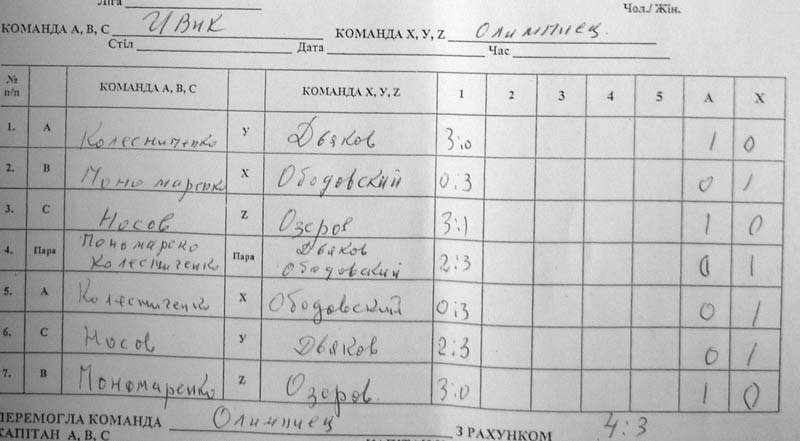 Ліга
Чол./ Жін.
КОМАНДА А, В, С ИВиК КОМАНДА X, У, Z Олимпиец
Стіл Дата Час
№ п/п КОМАНДА А, В, С КОМАНДА X, У, Z 1 2 3 4 5 А Х
1. А Колесниченко У Дьяков 3:0 1 0
2. В Пономаренко Х Ободовский 0:3 0 1
3. С Носов Z Озеров 3:1 1 0
4. Пара Пономарено Колесниченко Пара Дьяков Ободовский 2:3 0 1
5. А Колесниченко Х Ободовский 0:3 0 1
6. С Носов У Дьяков 2:3 0 1
7. В Пономаренко Z Озеров 3:0 1 0
ПЕРЕМОГЛА КОМАНДА Олимпиец З РАХУНКОМ 4:3
КАПІТАН А, В, С